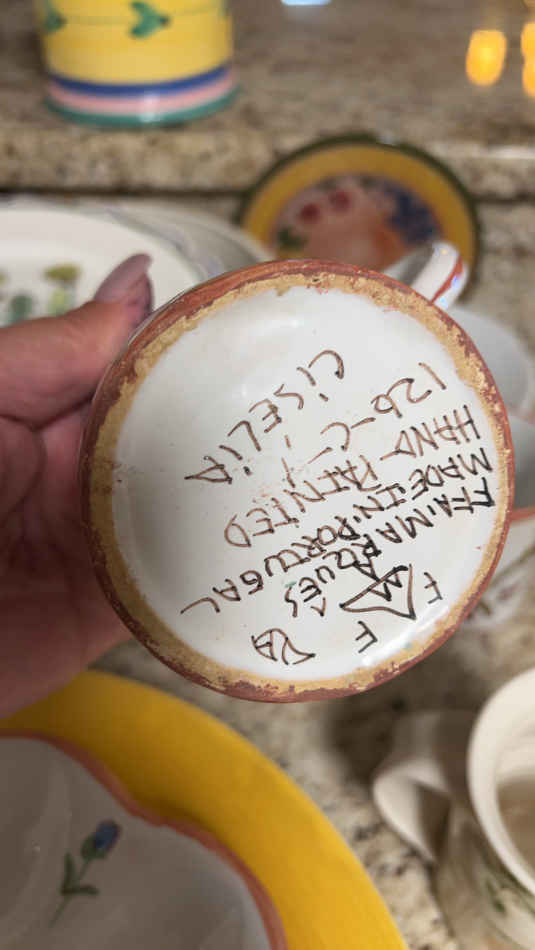 F M F VA
FFA.MARQUES
MADE·IN·PORTUGAL
HAND PAINTED
126-C-1
CiSELiA